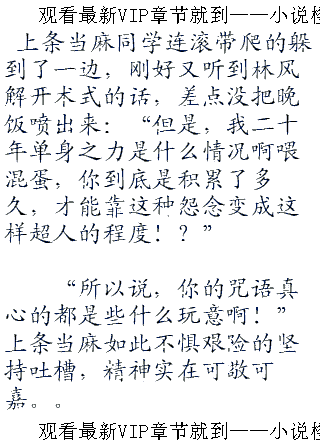 观看最新VIP章节就到——小说检
上条当麻同学连滚带爬的躲
到了一边，刚好又听到林风
解开术式的话，差点没把晚
饭喷出来：“但是，我二十
年单身之力是什么情况啊喂
混蛋，你到底是积累了多
久，才能靠这种怨念变成这
样超人的程度！？”
“所以说，你的咒语真
心的都是些什么玩意啊！”
上条当麻如此不惧艰险的坚
持吐槽，精神实在可敬可
嘉。。
观看最新VIP章节就到——小说检